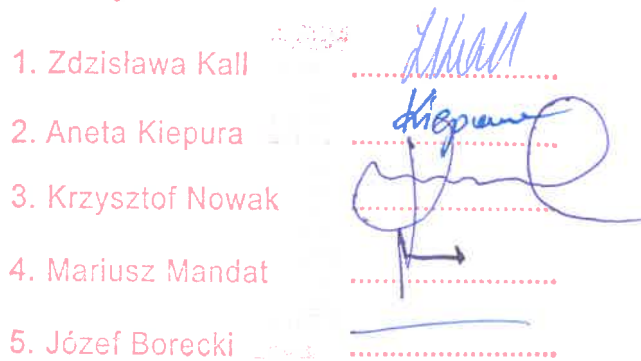 1. Zdzisława Kall
2. Aneta Kiepura Kiepura
3. Krzysztof Nowak
4. Mariusz Mandat
5. Józef Borecki